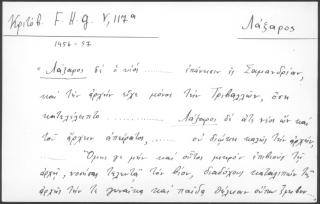 Κριτόβ. F.H.G. V, 117α Λάζαρος
1456-57
"Λάζαρος δὲ ὁ νέος ......... ἐπάνεισιν ἐς Σαμανδρίαν,
καὶ τὴν ἀρχὴν εἶχε μόνος τῶν Τριβαλλῶν, ὅση
κατελέλειπτο ......... Λάζαρος δὲ ἅτε νέος ὢν καὶ
τοῦ ἄρχειν ἀπείρατος, ......... οὐ διῴκει καλῶς τὴν ἀρχήν,
......... Ὅμως γε μὴν καὶ οὗτος μικρὸν ἐπιβιοὺς τῇ
ἀρχῇ, νοσήσας τελευτᾷ τὸν βίον, διαδόχους καταλιπὼν τῆς
ἀρχῆς τήν τε γυναῖκα καὶ παῖδα θήλειαν